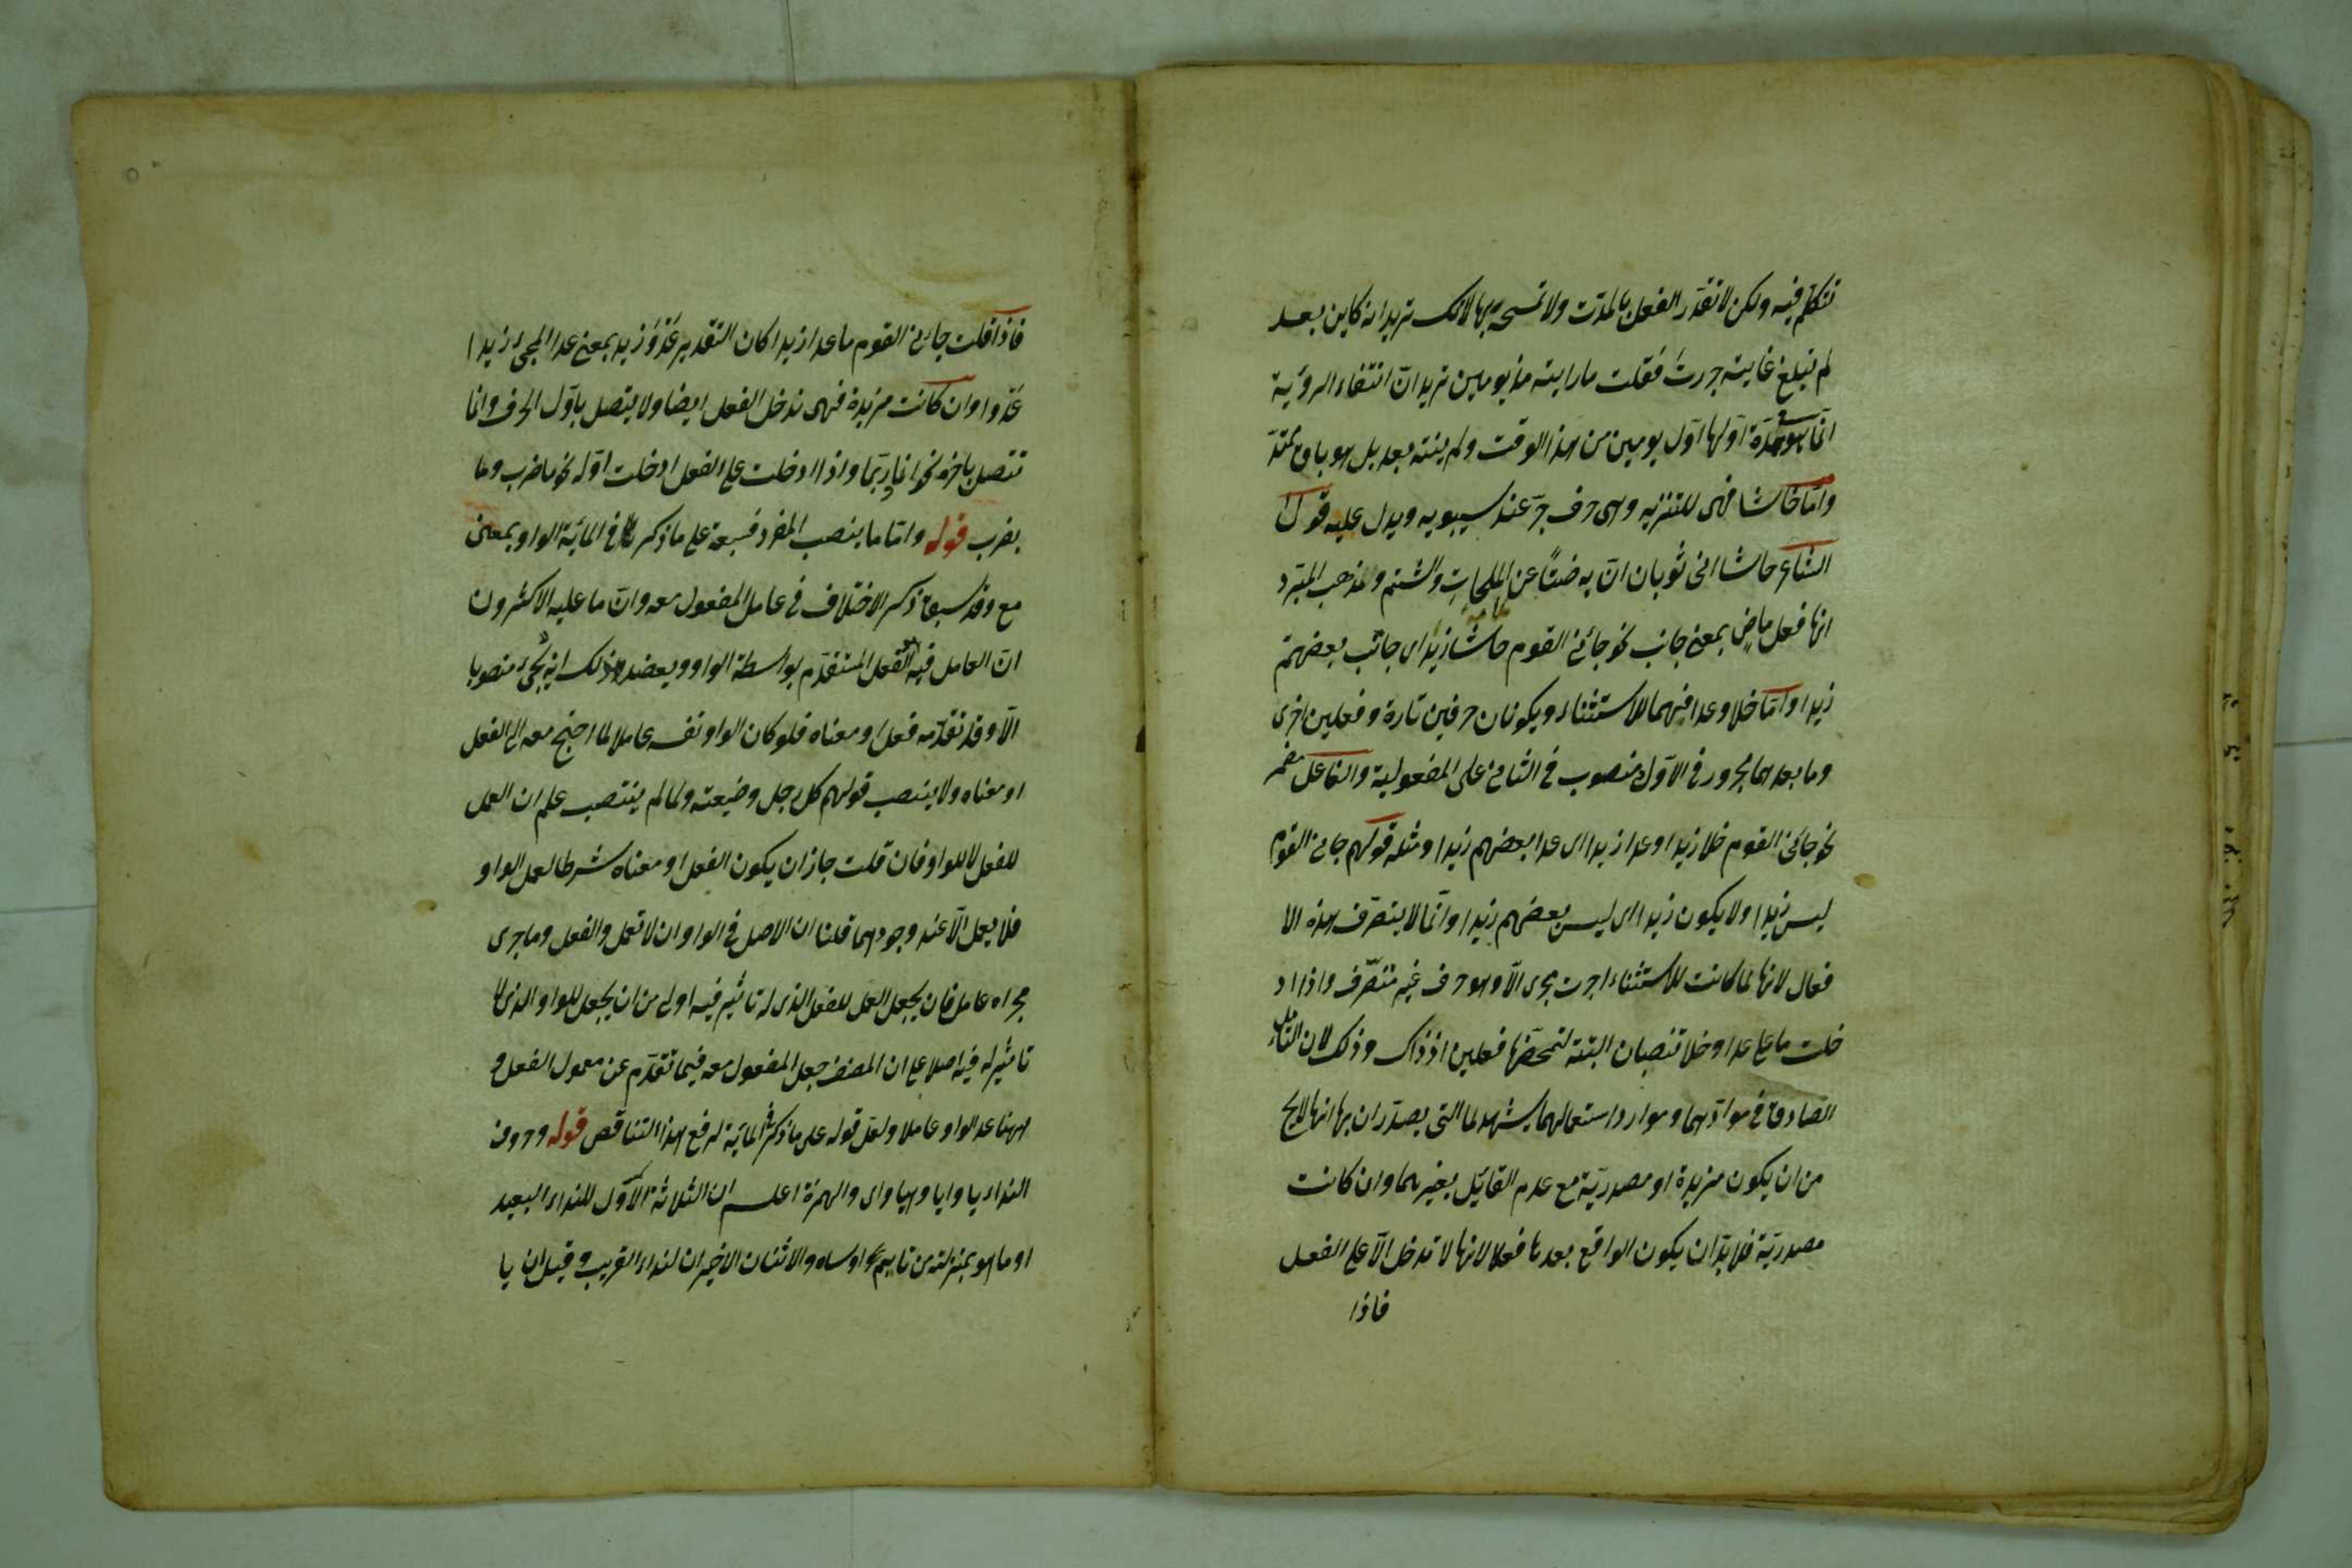 نتكلم فيه ولكن لا تقدر الفعل بالمدت ولا تسحبه بها لانك تريد انه كاين بعد
لم تبلغ غايته جررت فقلت مارايته مذ يومين تريد ان انتفاء الرؤية
انما هو مدة اولها اول يومين من هذا الوقت ولم ينته بعد بل هو باق ممتد
واما حاشا فهى للتنزيه وهى حرف جر عند سيبويه ويدل عليه قول
الشاعر حاشا ابى ثوبان ان به ضنًا عن الملحات والشتم ومذهب المبرد
انها فعل ماض بمعنى جانب نحو جائنى القوم حاشا زيدا اى جانب بعضهم
زيدا واما خلا وعدا فيهما للاستثناء ويكونان حرفين تارة وفعلين اخرى
وما بعدهما مجرور فى الاول منصوب فى الثانى على المفعولية والفاعل مضمر
نحو جائنى القوم خلا زيدا وعدا زيدا اى عدا بعضهم زيدا ومثله قولهم جائنى القوم
ليس زيدا ولا يكون زيدا اى ليس بعضهم زيدا وانما لا يتصرف هذه الا
فعال لانها لما كانت للاستثناء اجرت مجرى الا وهو حرف غير متصرف واذا اد
خلت ما على عدا وخلا تنصبان البتة لتمحضها فعلين اذ ذاك وذلك لان التامل
الصادق فى موادهما وموارد استعمالهما يشهد لما التى يصدران بها انها لايخ
من ان يكون مزيدة او مصدرية مع عدم القائل بغيرهما وان كانت
مصدرية فلا بد ان يكون الواقع بعدها فعلا لانها لا تدخل الا على الفعل
فاذا
فاذا قلت جائنى القوم ما عدا زيدا كان التقدير عَدْوَ زيد بمعنى عدا المجئ زيدا
عدوا وان كانت مزيدة فهى تدخل الفعل ايضا ولا يتصل باول الحرف وانما
تتصل باخره نحو انما وربما واذا ادخلت على الفعل ادخلت اوله نحو ما ضرب وما
يضرب قوله واما ما ينصب المفرد فسبعة على ما ذكر فى المائة الواو بمعنى
مع وقد سبق ذكر الاختلاف فى عامل المفعول معه وان ما عليه الاكثرون
ان العامل فيه الفعل المتقدم بواسطة الواو ويعضد ذلك انه لم يجئ منصوبا
الا وقد تقدمه فعل او معناه فلو كان الواو نفسه عاملا لما احتج معه الى الفعل
او معناه ولا ينتصب قولهم كل رجل وضيعته ولما لم ينتصب علم ان العمل
للفعل لا للواو فان قلت جاز ان يكون الفعل او معناه شرطا لعمل الواو
فلا يعمل الا عند وجودهما قلنا ان الاصل فى الواو ان لا تعمل والفعل وما جرى
مجراه عامل فان يجعل العمل للفعل الذى له تاثير فيه اولى من ان يجعل للواو الذى لا
تاثير له فيه اصلا على ان المصنف جعل المفعول معه فيما تقدم عن معمول الفعل و
ههنا عد الواو عاملا ولعل قوله على ما ذكر فى المائة لرفع هذا التناقص قوله وحروف
النداء يا وايا وهيا واى والهمزة اعلم ان الثلاثة الاول للنداء البعيد
او ما هو بمنزلته من نايم او ساه والاثنان الاخيران لنداء القريب وقيل ان يا